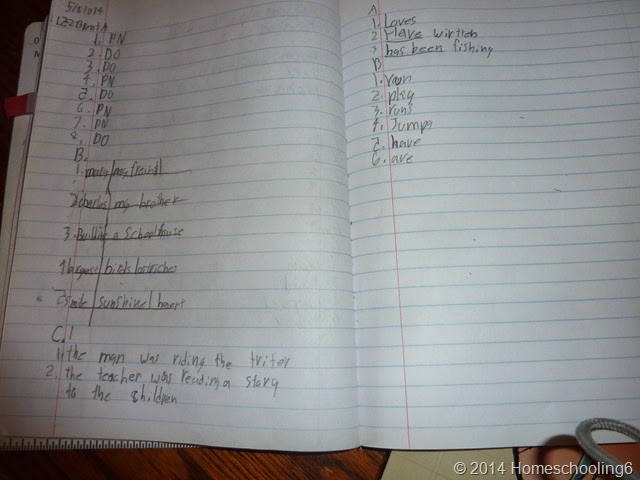 5/8/2014
A
1. PN
2. DO
3. DO
4. PN
5. DO
6. PN
7. PN
8. DO
B.
1. mary my freind
2 charles my brother
3. Building a Schoolhouse
4 largest birds ostriches
5 smile sunshine heart
C.
1. the man was riding the
2. the teacher was reading a story
to the children
A
1. Loves
2 Have
3 has been fishing
B
1. roan
2. play
3. runs
4. Jumps
5. have
6. are
© 2014 Homeschooling6